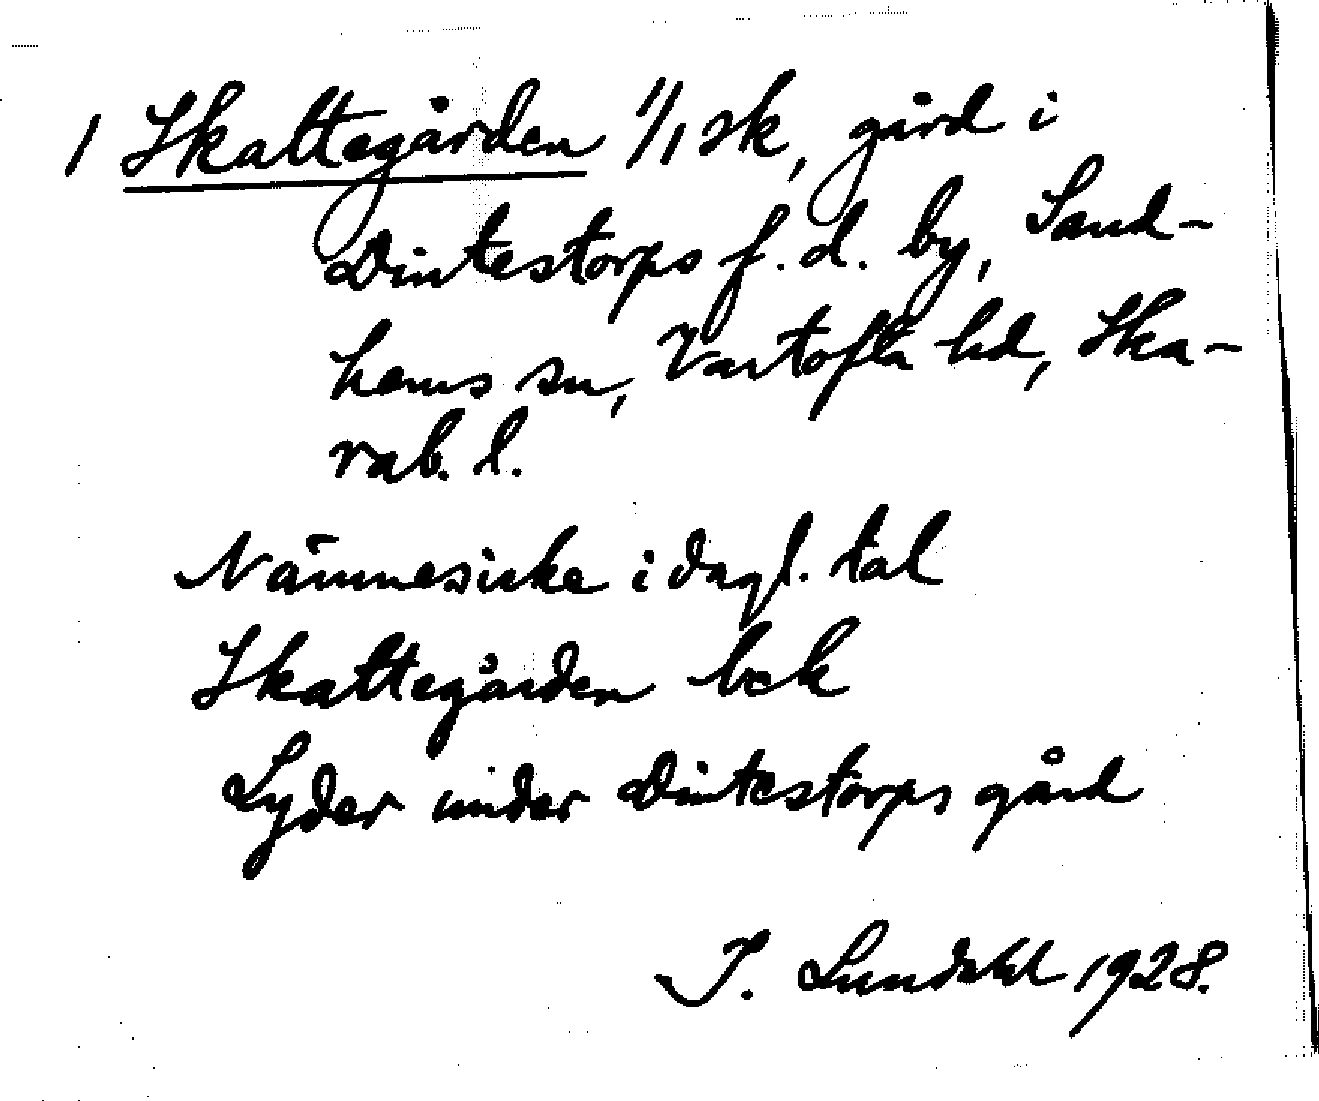 1 Skattegården 1/1 sk, gård i
Dintestorps f. d. by, Sand-
hems sn, Vartofta hd, Ska-
rab. l.
i dagl. tal
Skattegården
Lyder under Dintestorps gård
I. Lundahl 1928.